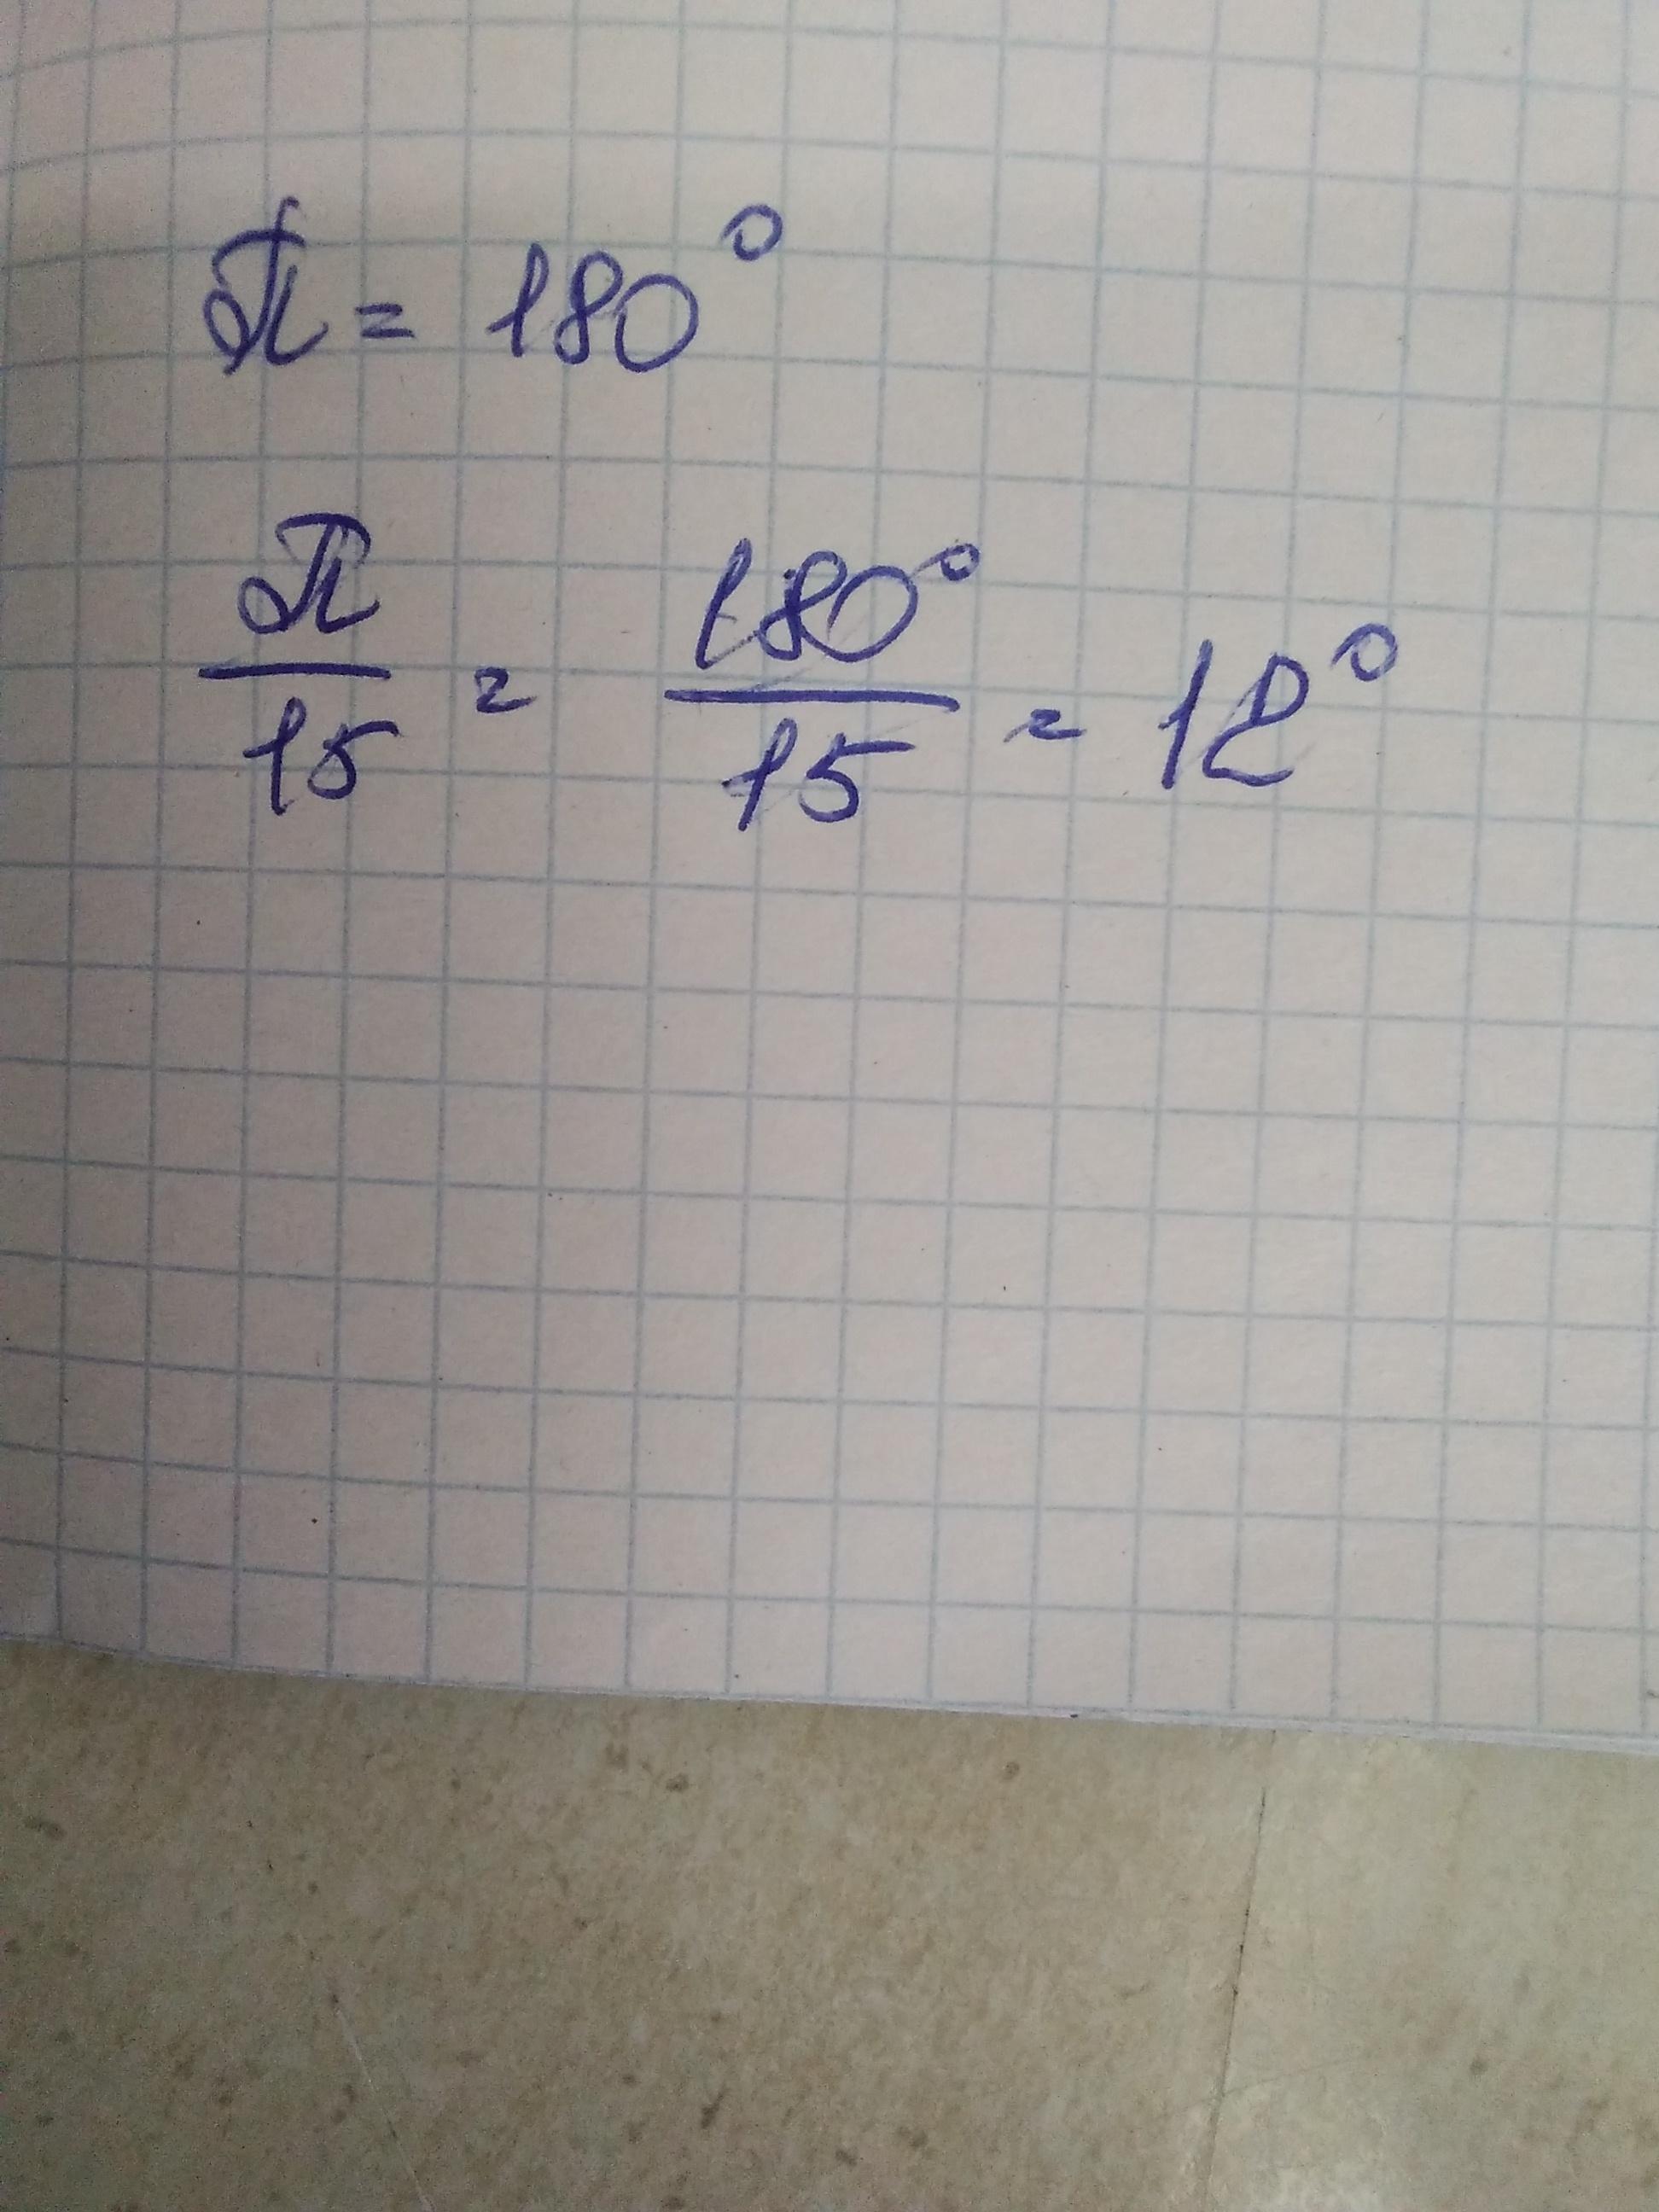 π = 180°
π/15 = 180°/15 = 12°